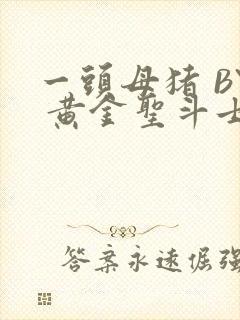 一頭母猪 BY
黄金聖斗士
答案永速倔强